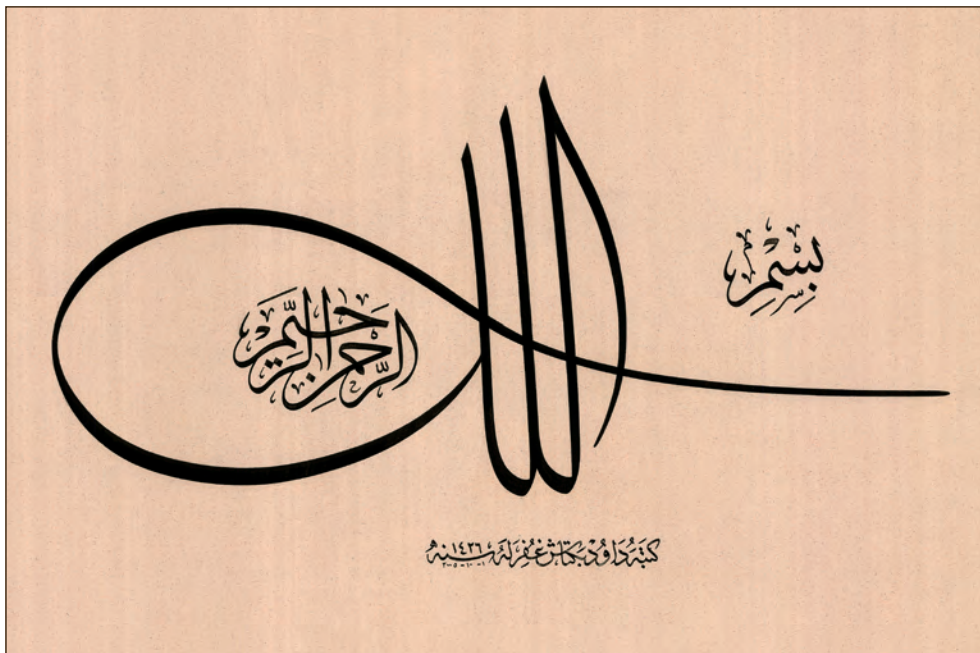 بِسْمِ
الله
الرَّحمنِ الرَّحيمِ
كتبَهُ دَاوُد بكتاش غُفِرَ لَهُ سنه ١٤٢٦